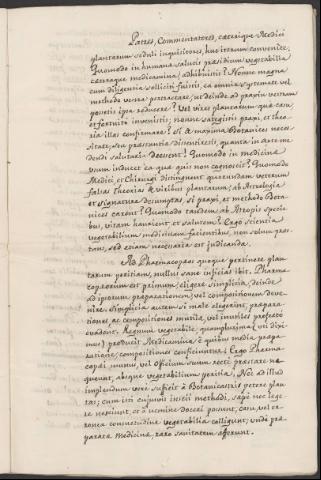 Patres, Commentatores, cæterique Medici
plantarum seduli inquisitores, huc iterum convenite.
Quomodo in humana salutis præsidium vegetabilia
cæteraque medicamina, adhibuistis? Nonne magna
cum diligentia solliciti fuistis, ea omnia systemate vel
methodo verna pertractare, ut deinde ad praxin vestram
potestis ipsa reducere? Vel vires plantarum quæ casu
et fortuito invenistis, nonne sategistis praxi, et theo-
ria illas confirmare? Si maxima Botanices neces-
sitate, seu præstantia dissereretis, quanta in arte me-
dendi salutaria deessent? Quomodo in medicina
usum inducet ea quæ quis non cognoscit? Quomodo
Medici, et Chirurgi distinguent quærundam veterum
falsas theorias de viribus plantarum, ab Astrologia
et signatura desumptas, si praxi, et methodo Bota-
nices carent? Quomodo tandem ab Atropis specie-
bus, vitam haurient et salutem? Ergo scientia
vegetabilium medicinam facientibus, non solum præs-
tans, sed etiam necessaria est judicanda.
Ad Pharmacopæos quoque pertinere plan-
tarum peritiam, nullus sane inficias ibit. Pharma-
copæorum est primum, eligere simplicia, deinde
ad ipsorum præparationem, vel compositionem deve-
nire. Simplicia autem si male elegerint, præpara-
tiones, ac compositiones mutila, vel inutiles profecto
evadent. Regnum vegetabile, quamplurima (uti dixi-
mus) producit Medicamina, e quibus media præpa-
rationes, compositiones conficiuntur. Ergo Pharma-
copæi, munus, vel officium suum recte præstare ne-
queunt, absque vegetabilium peritia. Nec ad illud
implendum vere suficit à Botanicastris petere plan-
tas; cum isti cujusvis inscii methodi, sæpe nec lege-
re nesciunt, et à nemine doceri possunt, casu, vel er-
ronea consuetudine vegetabilia colligunt; unde præ-
parata medicina, raro sanitatem afferunt.